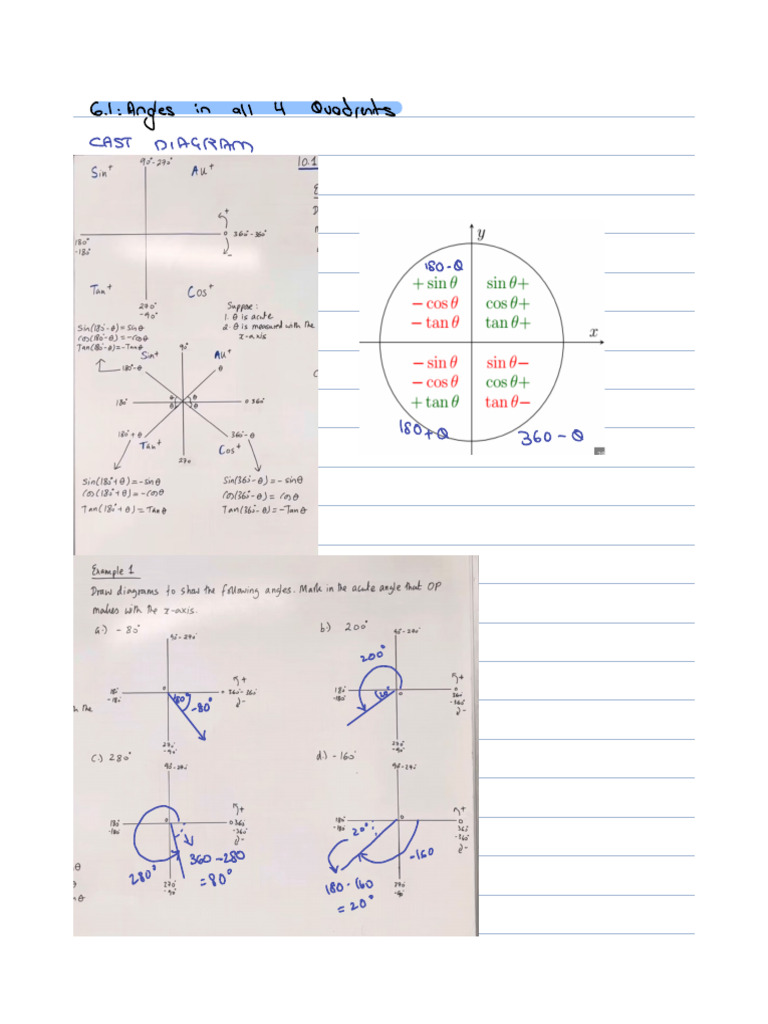 6.1: Angles in all 4 Quadrents
CAST DIAGRAM
90°-270°
Sin⁺
Au⁺
10.1
+
0 360-360°
180°
-180
Tan⁺
Cos⁺
270°
-90°
Suppose:
1. θ is acute
2. θ is measured with the
x-axis
Sin(180-θ)=Sinθ
Cos(180-θ)=-Cosθ
Tan(180-θ)=-Tanθ
90°
Sin⁺
Au⁺
180-θ
θ
θ θ
θ θ
180°
0 360
180+θ
360-θ
Tan⁺
Cos⁺
270
Sin(180+θ)=-Sinθ
Cos(180+θ)=-Cosθ
Tan(180+θ)=Tanθ
Sin(360-θ)=-Sinθ
Cos(360-θ)=Cosθ
Tan(360-θ)=-Tanθ
y
180-θ
+ sin θ
sin θ+
- cos θ
cos θ+
- tan θ
tan θ+
x
- sin θ
sin θ-
- cos θ
cos θ+
+ tan θ
tan θ-
180+θ
360-θ
Example 1
Draw diagrams to show the following angles. Mark in the acute angle that OP
makes with the x-axis.
a.) -80°
b.) 200°
90-270°
90-270°
200°
180°
-180°
0
+
0
360-360
-
80°
-80°
180°
-180°
20°
0
+
0
360
-360
-
th the
270
-90°
270
-90°
c.) 280°
d.) -160°
90-270
90-270
180°
-180
0
+
0 360
-360
-
180°
-180
20°
0
+
0
360
-360
-
280°
360-280
=80°
270°
-90°
-160
180-160
=20°
270°
-90
θ
θ